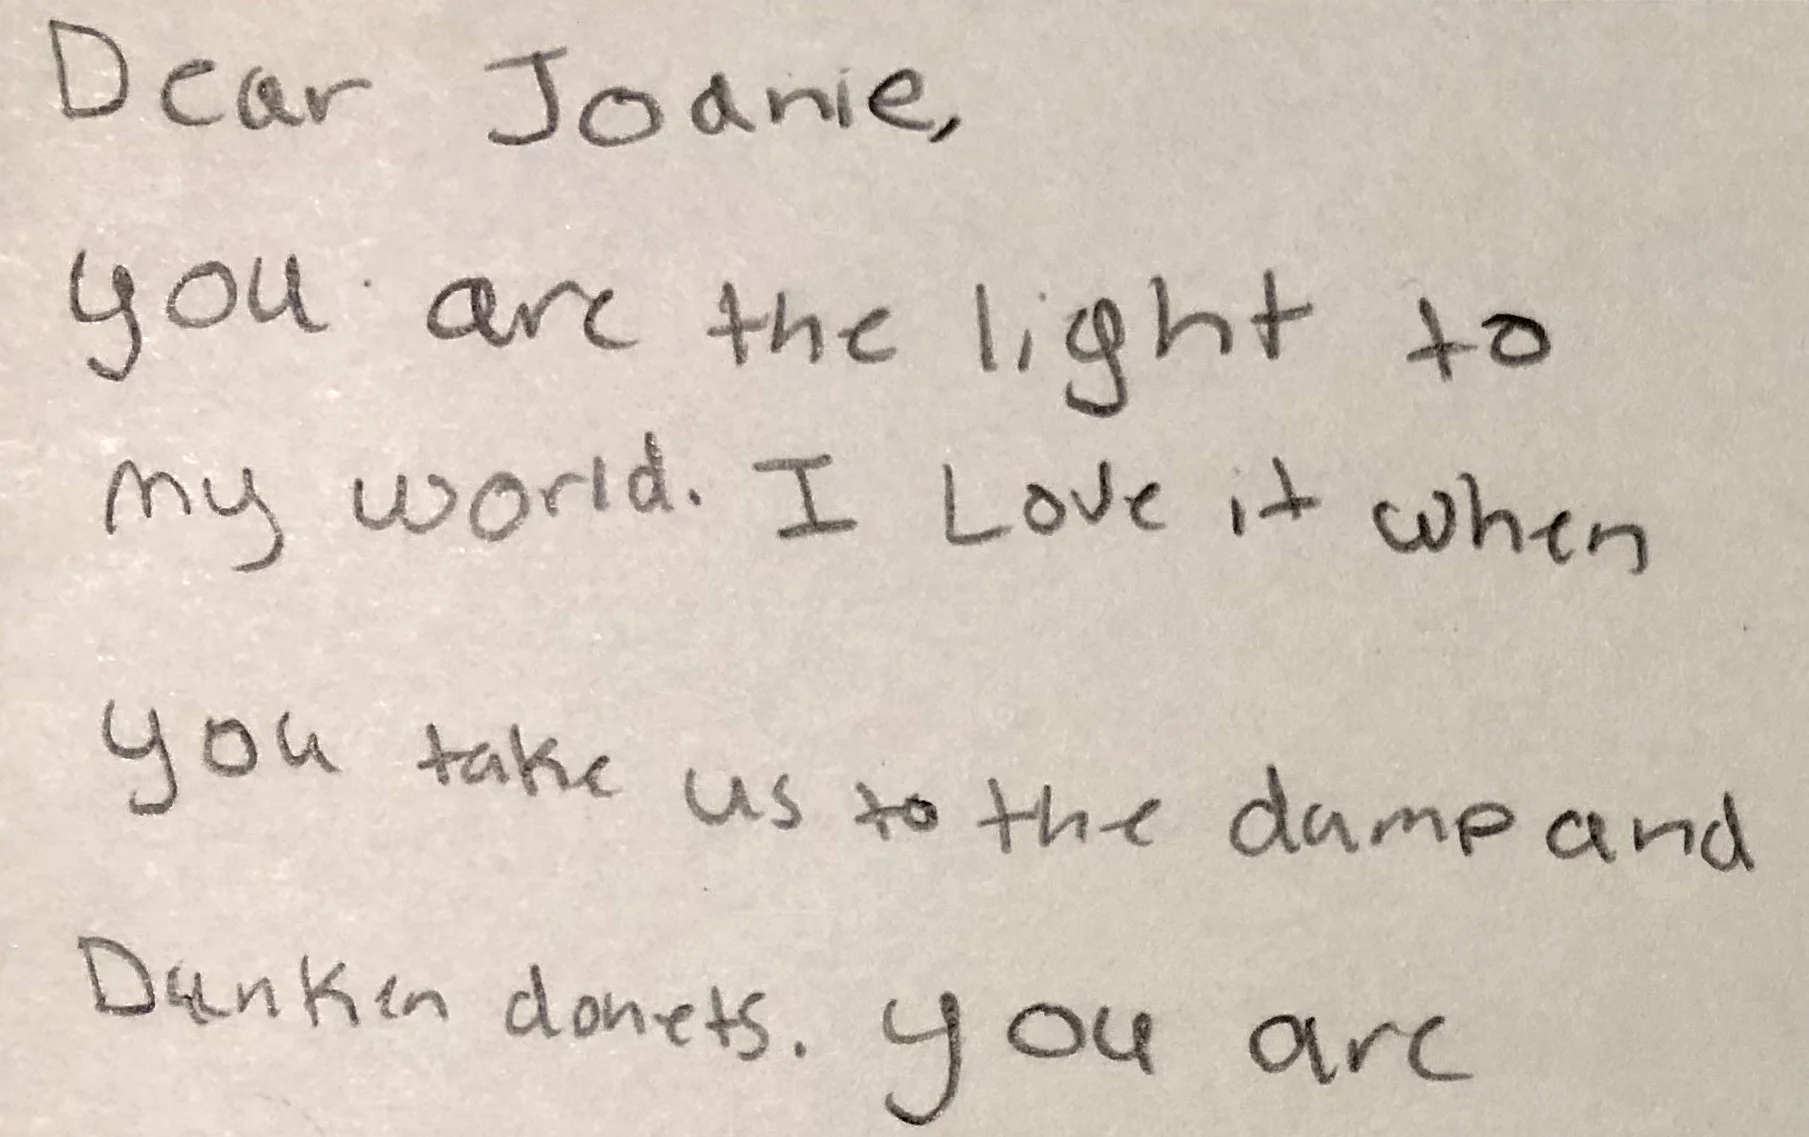 Dear Joanie,
you are the light to
my world. I Love it when
you take us to the dump and
Dunken donets. you are